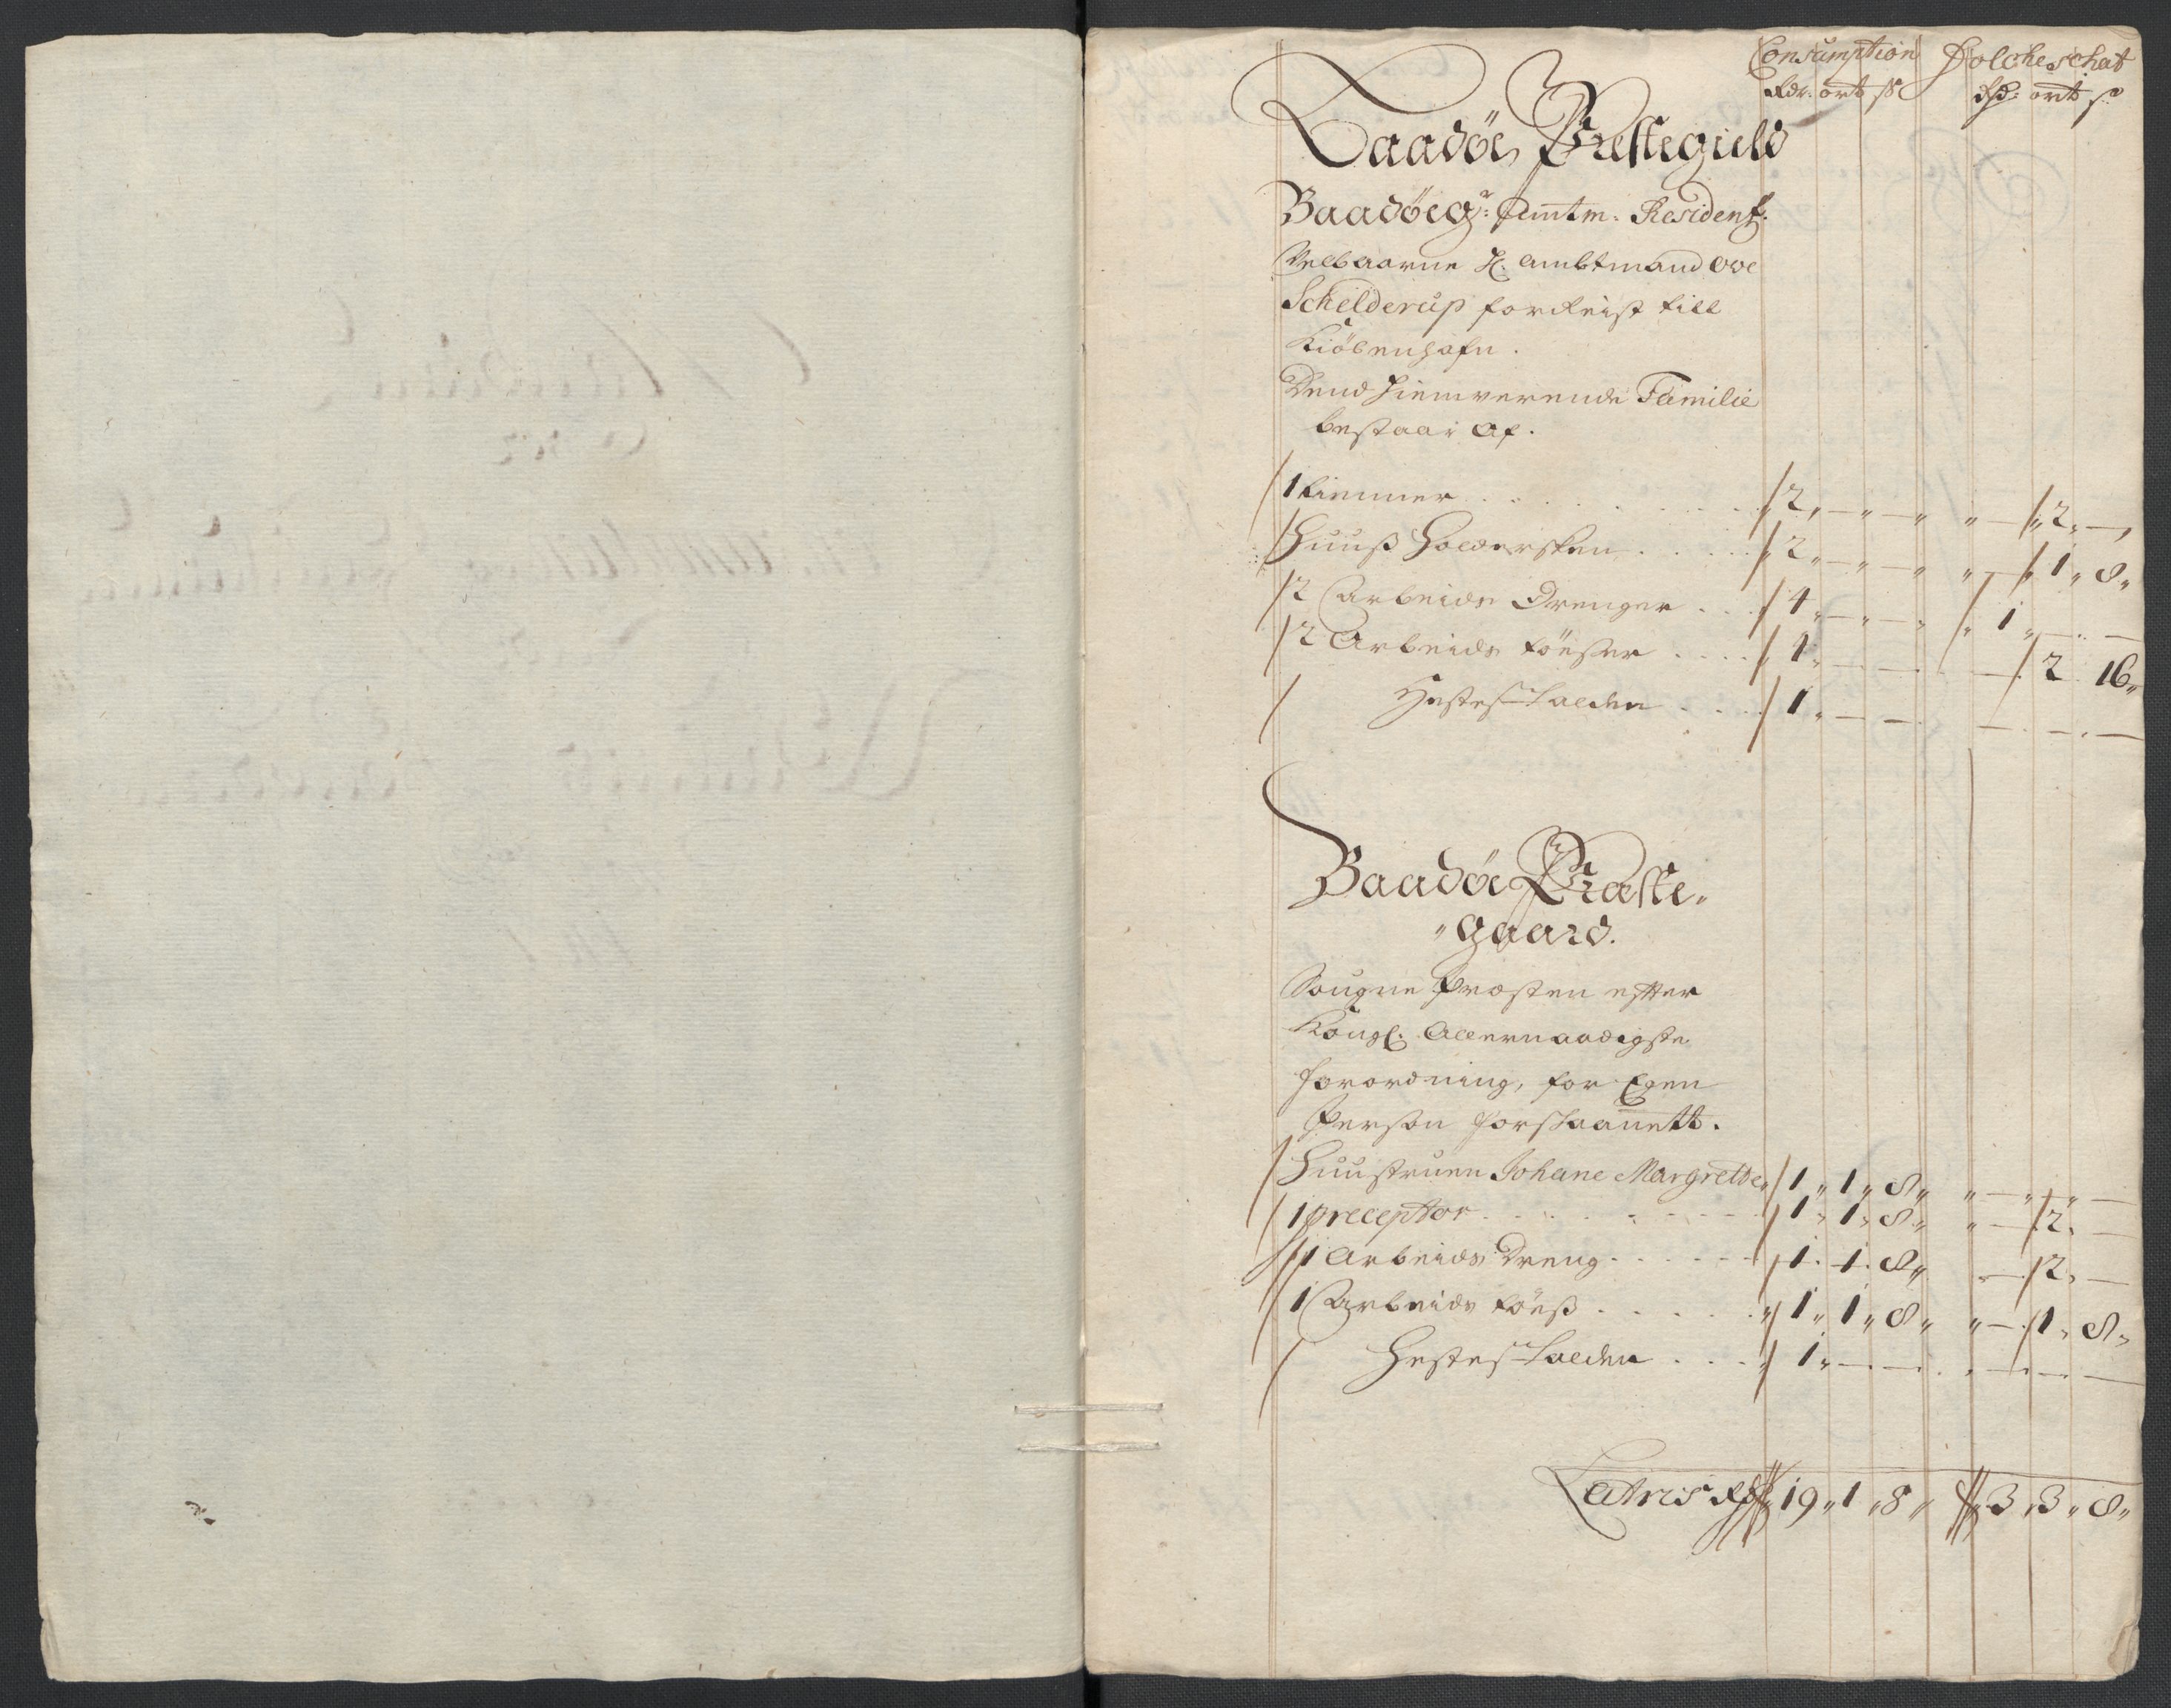 Consumption Folcheschat
Rdr: ort ſs Rd: ort s
Baadøe Prestegield
Baadøeg: Amtm: Resident.
Velbaarne H: Ambtmand Ove
Schelderup forReist till
Kiöbenhafn.
Dend hiemverende Familie
bestaar af.
1 kiemmer . . . 2 " — " — " " — " 2 " —
Huuß Holdersken . . . 2 " — " — " " — " 1 " 8 "
2 Arbeids Drenger . . . 4 " — " — " " 1 " — " —
2 Arbeids töeßer . . . 4 " — — — 2 16 "
Hestes Skoeden . . . 1 " — — — — —
Baadøe Præste-
"gaard.
Sougne Præsten efter
Kongl: Allernaadigste
forordning, for Egen
Person forskaanett.
Huustruen Johane Margrethe " 1 " 1 " 8 " " — " — " —
1 preceptor . . . 1 " 1 " 8 " " — 2 " —
1 Arbeids Dreng . . . 1 " 1 " 8 " — 2 " —
1 Arbeids töeß . . . " 1 " 1 " 8 " " — 1 " 8 "
Hestes Skoeden . . . 1 " — — — — —
Latris Rd 19 " 1 " 8 " 3 " 3 " 8 "